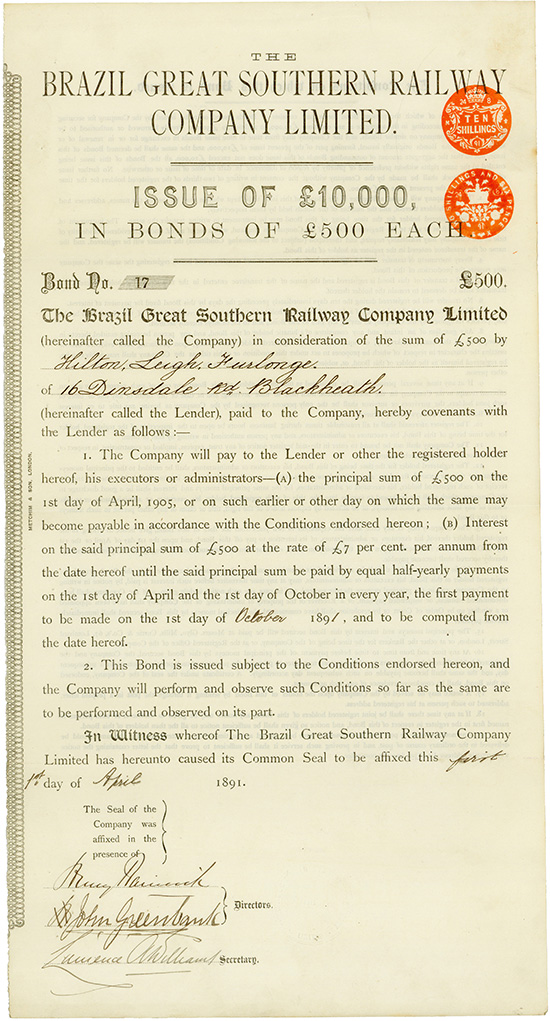 THE
BRAZIL GREAT SOUTHERN RAILWAY
COMPANY LIMITED.
TEN
SHILLINGS
SHILLINGS AND SIX PENCE
ISSUE OF £10,000,
IN BONDS OF £500 EACH
Bond No. 17 £500.
The Brazil Great Southern Railway Company Limited
(hereinafter called the Company) in consideration of the sum of £500 by
Hilton, Leigh, Furlonge.
of 16 Dinsdale Rd. Blackheath.
(hereinafter called the Lender), paid to the Company, hereby covenants with
the Lender as follows :—
1. The Company will pay to the Lender or other the registered holder
hereof, his executors or administrators—(A) the principal sum of £500 on the
1st day of April, 1905, or on such earlier or other day on which the same may
become payable in accordance with the Conditions endorsed hereon ; (B) Interest
on the said principal sum of £500 at the rate of £7 per cent. per annum from
the date hereof until the said principal sum be paid by equal half-yearly payments
on the 1st day of April and the 1st day of October in every year, the first payment
to be made on the 1st day of October 1891, and to be computed from
the date hereof.
2. This Bond is issued subject to the Conditions endorsed hereon, and
the Company will perform and observe such Conditions so far as the same are
to be performed and observed on its part.
In Witness whereof The Brazil Great Southern Railway Company
Limited has hereunto caused its Common Seal to be affixed this first
1st day of April 1891.
The Seal of the
Company was
affixed in the
presence of
Henry
John Greenbank
Directors.
Williams
Secretary.
METCHIM & SON, LONDON.